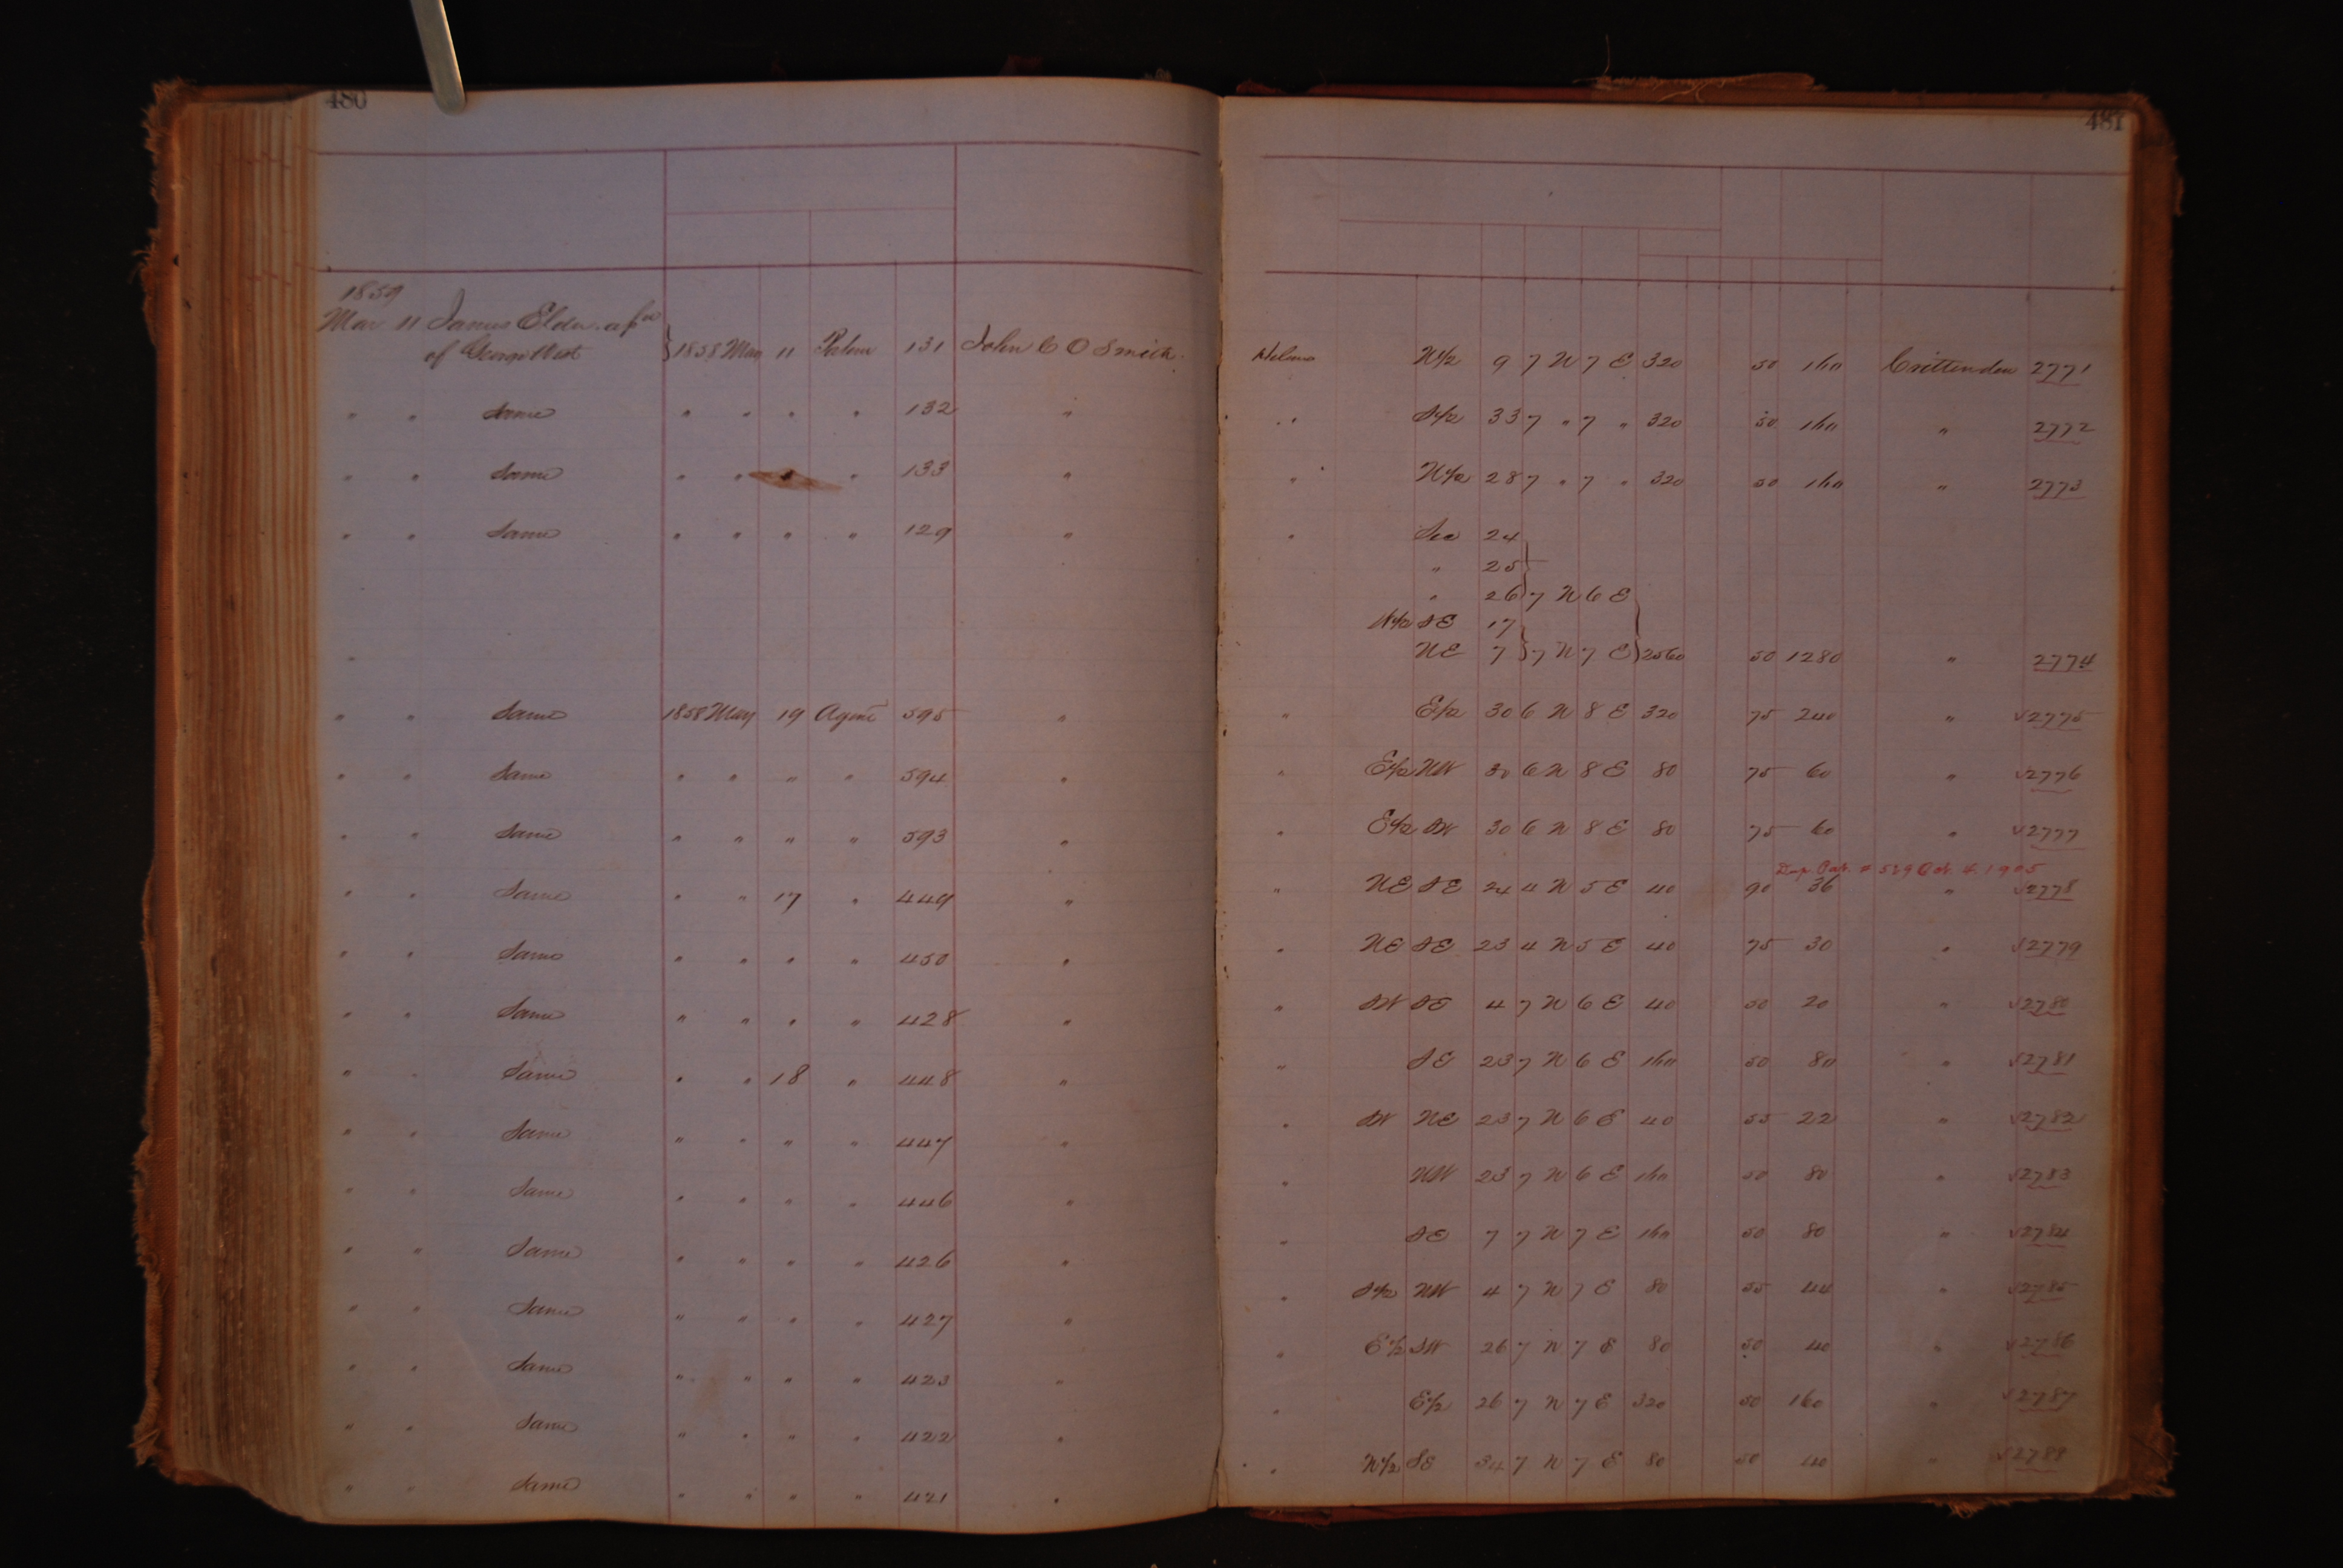 480 481
1859
Mar 11 James Elder
of George West } 1858 May 11 131 John C O Smith Helena N½ 9 7 N 7 E 320 50 160 Crittenden 2771
" " Same " " " " 132 " " S½ 33 7 " 7 " 320 50 160 " 2772
" " Same " " " " 133 " " N½ 28 7 " 7 " 320 50 160 " 2773
" " Same " " " " 129 " " Sec 24
" 25
" 26 } 7 N 6 E
SE 17
NE 7 } 7 N 7 E } 2560 50 1280 " 2774
" " Same 1858 May 19 Agent 595 " " E½ 30 6 N 8 E 320 75 240 " √2775
" " Same " " " " 594 " " E½ NW 30 6 N 8 E 80 75 60 " √2776
" " Same " " " " 593 " " E½ SW 30 6 N 8 E 80 75 60 " √2777
Dup. Pat. # 529 Oct. 4. 1905
" " Same " " 17 " 449 " " NE SE 24 4 N 5 E 40 90 36 " √2778
" " Same " " " " 450 " " NE SE 23 4 N 5 E 40 75 30 " √2779
" " Same " " " " 428 " " SW SE 4 7 N 6 E 40 50 20 " √2780
" " Same " " 18 " 448 " " SE 23 7 N 6 E 160 50 80 " √2781
" " Same " " " " 447 " " SW NE 23 7 N 6 E 40 55 22 " √2782
" " Same " " " " 446 " " NW 23 7 N 6 E 160 50 80 " √2783
" " Same " " " " 426 " " SE 7 7 N 7 E 160 50 80 " √2784
" " Same " " " " 427 " " S½ NW 4 7 N 7 E 80 55 44 " √2785
" " Same " " " " 423 " " E½ SW 26 7 N 7 E 80 50 40 " √2786
" " Same " " " " 422 " " E½ 26 7 N 7 E 320 50 160 " √2787
" " Same " " " " 421 " " N½ SE 34 7 N 7 E 80 50 40 " √2788